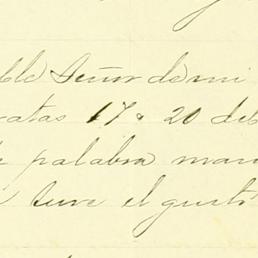 ble Señor de mi
ratas 17 o 20 de
palabra man
tuve el gusto